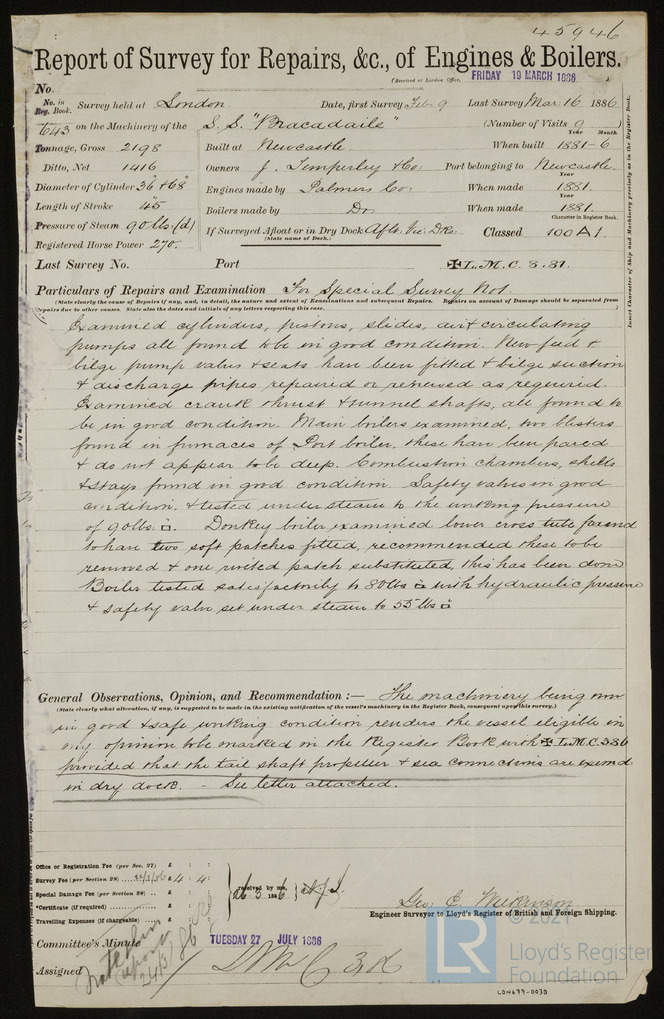 45946
Report of Survey for Repairs, &c., of Engines & Boilers.
(Received at London Office, FRIDAY 19 MARCH 1886
No.
No. in Reg. Book. Survey held at London Date, first Survey Feb. 9 Last Survey Mar. 16 1886
643 on the Machinery of the S.S. "Bracadaile" (Number of Visits 9
Year Month
Tonnage, Gross 2198 Built at Newcastle When built 1881-6
Ditto, Net 1416 Owners J. Temperley & Co: Port belonging to Newcastle
Year
Diameter of Cylinder 36" & 68" Engines made by Palmers Co: When made 1881.
Year
Length of Stroke 45" Boilers made by Do When made 1881.
Character in Register Book.
Pressure of Steam 90 lbs (d) If Surveyed Afloat or in Dry Dock Aflt. Vic: Dks: Classed 100 A 1.
(State name of Dock.)
Registered Horse Power 270.
Last Survey No. Port ✠ L.M.C. 3.81.
Particulars of Repairs and Examination For Special Survey No 1.
(State clearly the cause of Repairs if any, and, in detail, the nature and extent of Examinations and subsequent Repairs. Repairs on account of Damage should be separated from
Repairs due to other causes. State also the dates and initials of any letters respecting this case.
Examined cylinders, pistons, slides, air & circulating
pumps all found to be in good condition. New feed &
bilge pump valves & seats have been fitted & bilge suction
& discharge pipes repaired or renewed as required.
Examined crank thrust & tunnel shafts, all found to
be in good condition. Main boilers examined, two blisters
found in furnaces of Port boiler, these have been pared
& do not appear to be deep. Combustion chambers, shells
& stays found in good condition. Safety valves in good
condition & tested under steam to the working pressure
of 90 lbs □. Donkey boiler examined lower cross tube found
to have two soft patches fitted, recommended these to be
removed & one riveted patch substituted, this has been done
Boiler tested satisfactorily to 80 lbs □ with hydraulic pressure
& safety valve set under steam to 55 lbs □
General Observations, Opinion, and Recommendation :— The machinery being now
(State clearly what alteration, if any, is suggested to be made in the existing notification of the vessel's machinery in the Register Book, consequent upon this survey.)
in good & safe working condition renders the vessel eligible in
my opinion to be marked in the Register Book with ✠ L.M.C. 3.86
provided that the tail shaft propeller & sea connections are examd
in dry dock. - See letter attached.
Office or Registration Fee (per Sec. 27) £ : :
Survey Fee (per Section 28) £ 4 : 4 :
Special Damage Fee (per Section 28) £ : :
*Certificate (if required) £ : :
Travelling Expenses (if chargeable) £ : :
received by me,
26 3 1886
Geo: C. Wilkinson.
Engineer Surveyor to Lloyd's Register of British and Foreign Shipping.
Committee's Minute TUESDAY 27 JULY 1886
Assigned LMC 3,86
Insert Character of Ship and Machinery precisely as in the Register Book.
© 2021
LR
Lloyd's Register
Foundation
LON677-0030